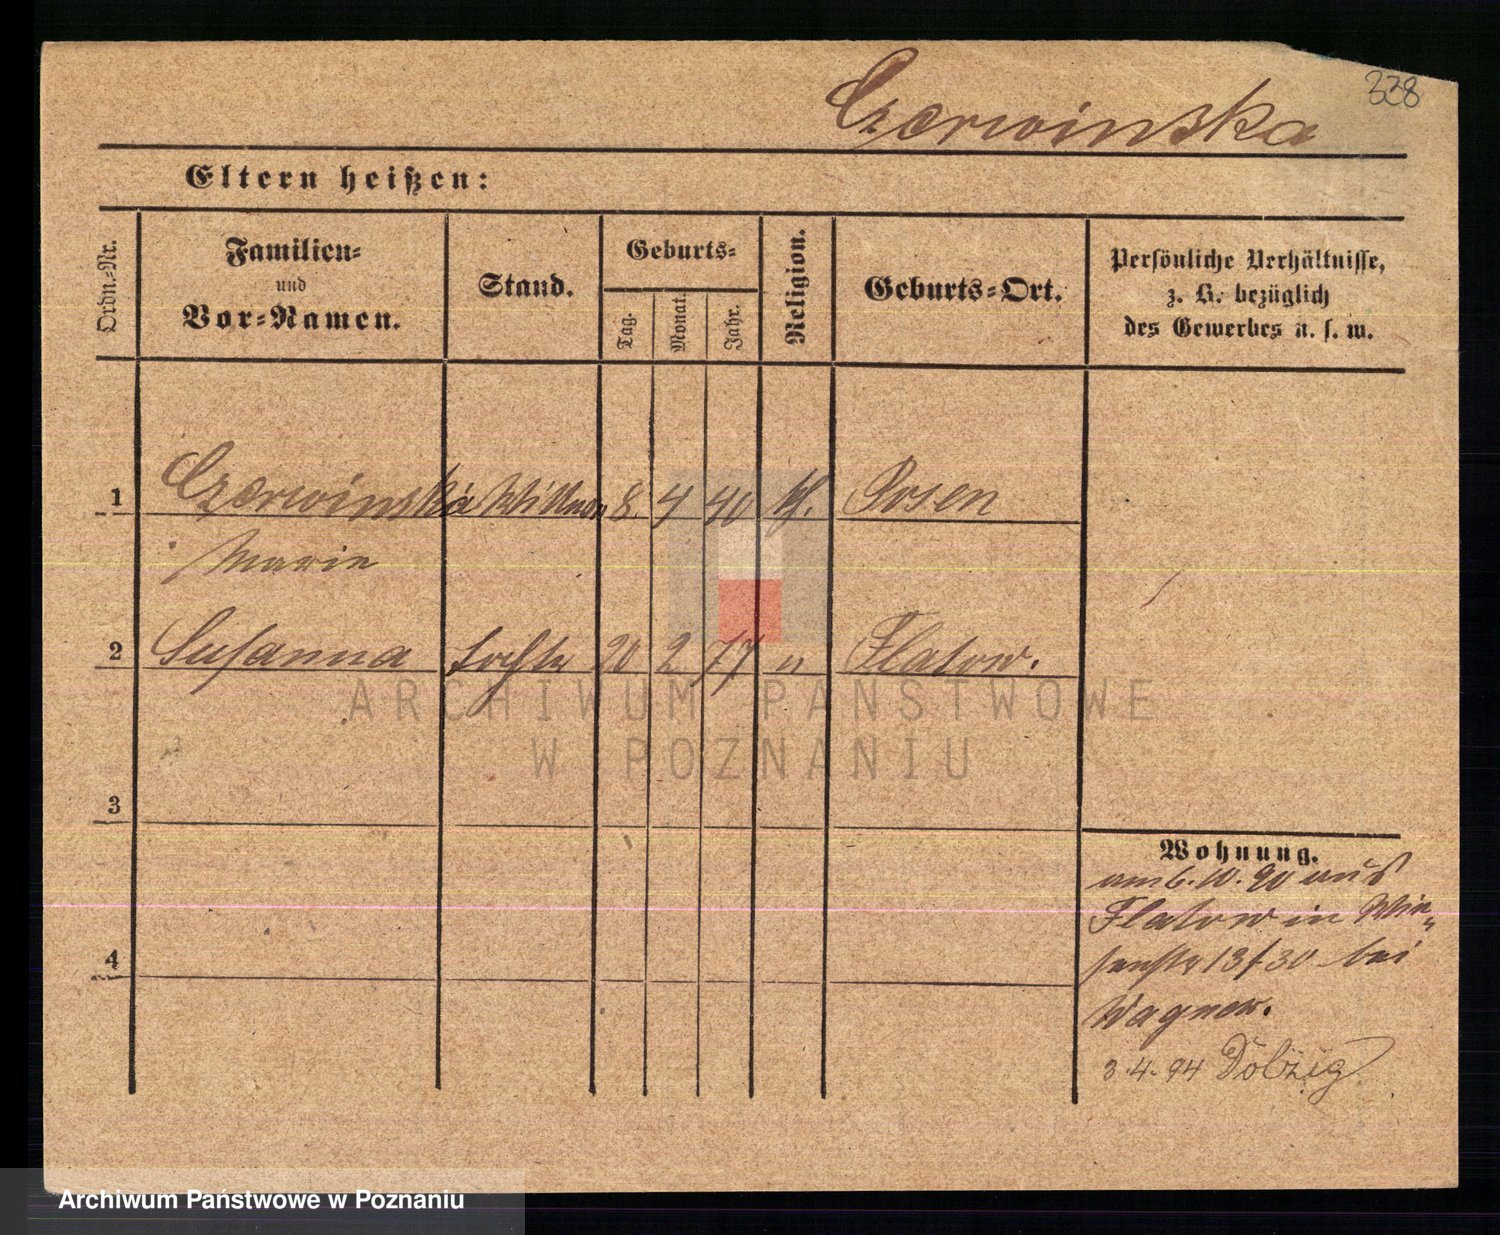 338
Czerwinska
Eltern heißen:
Ordn.-Nr.
Familien-
und
Vor-Namen.
Stand.
Geburts-
Tag.
Monat.
Jahr.
Religion.
Geburts-Ort.
Persönliche Verhältnisse,
z. B. bezüglich
des Gewerbes u. s. w.
1 Czerwinska Wittwe 8. 4 40 kth. Posen
Marie
2 Susanna Tochter 20 2 77 " Flatow.
ARCHIWUM PAŃSTWOWE
W POZNANIU
3
4
Wohnung.
am 6. 10. 90 aus
Flatow in Wie-
senstr 13/30 bei
Wagner.
3.4.94 Dolzig
Archiwum Państwowe w Poznaniu